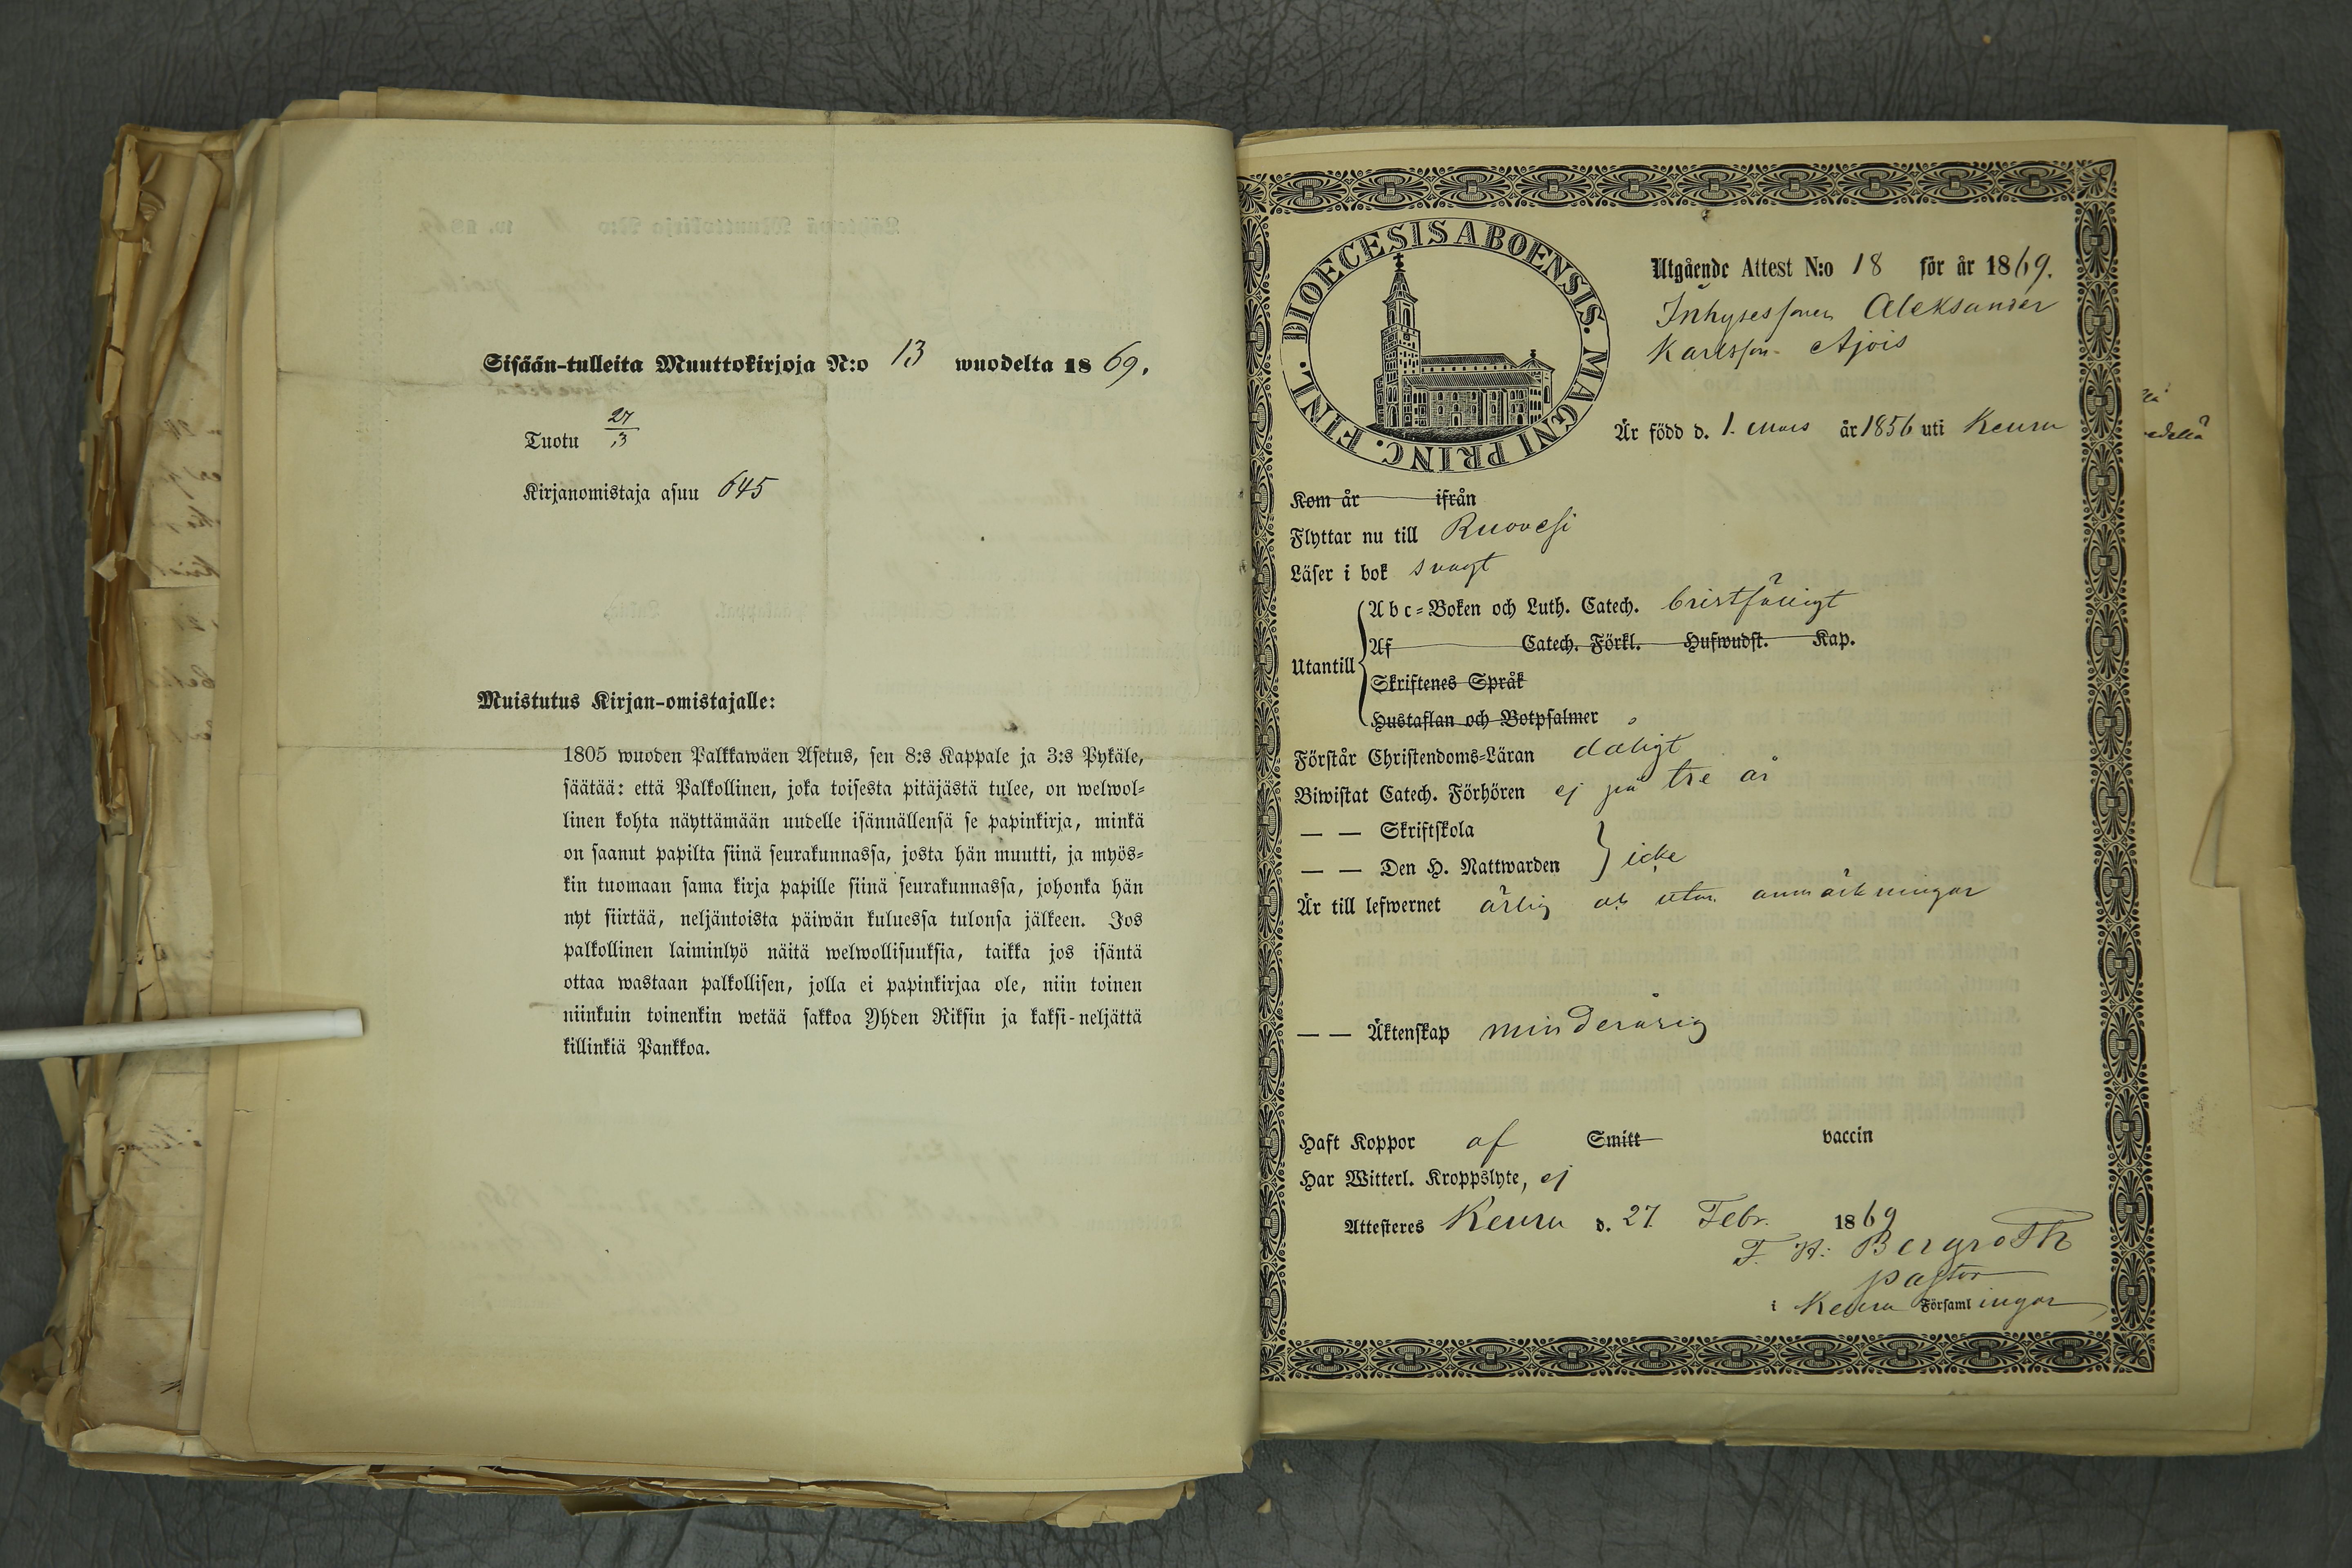 Sisään-tulleita Muuttokirjoja N:o 13 wuodelta 1869.
Tuotu 27/3
Kirjanomistaja asuu 645
Muistutus Kirjan-omistajalle:
1805 wuoden Palkkawäen Asetus, sen 8:s Kappale ja 3:s Pykäle,
säätää: että Palkollinen, joka toisesta pitäjästä tulee, on welwol-
linen kohta näyttämään uudelle isännällensä se papinkirja, minkä
on saanut papilta siinä seurakunnassa, josta hän muutti, ja myös-
kin tuomaan sama kirja papille siinä seurakunnassa, johonka hän
nyt siirtää, neljäntoista päiwän kuluessa tulonsa jälkeen. Jos
palkollinen laiminlyö näitä welwollisuuksia, taikka jos isäntä
ottaa wastaan palkollisen, jolla ei papinkirjaa ole, niin toinen
niinkuin toinenkin wetää sakkoa Yhden Riksin ja kaksi-neljättä
killinkiä Pankkoa.
DIOECESIS ABOENSIS. MAGNI PRINC. FINL.
Utgående Attest N:o 18 för år 1869.
Inhysessonen Aleksander
Karlsson Ajois
Är född d. 1. Mars år 1856 uti Keuru
Kom år ifrån
Flyttar nu till Ruovesi
Läser i bok svagt
Utantill
Abc-Boken och Luth. Catech. bristfäligt
Af Catech. Förkl. Hufwudst. Kap.
Skriftenes Språk
Hustaflan och Botpsalmer
Förstår Christendoms-Läran dåligt
Biwistat Catech. Förhören ej på tre år
— — Skriftskola
— — Den H. Nattwarden icke
Är till lefwernet ärlig och utan anmärkningar
— — Äktenskap minderårig
Haft Koppor af Smitt vaccin
Har Witterl. Kroppslyte, ej
Attesteras Keuru d. 27 Febr. 1869
F. H. Bergroth
pastor
i Keuru Församlingar